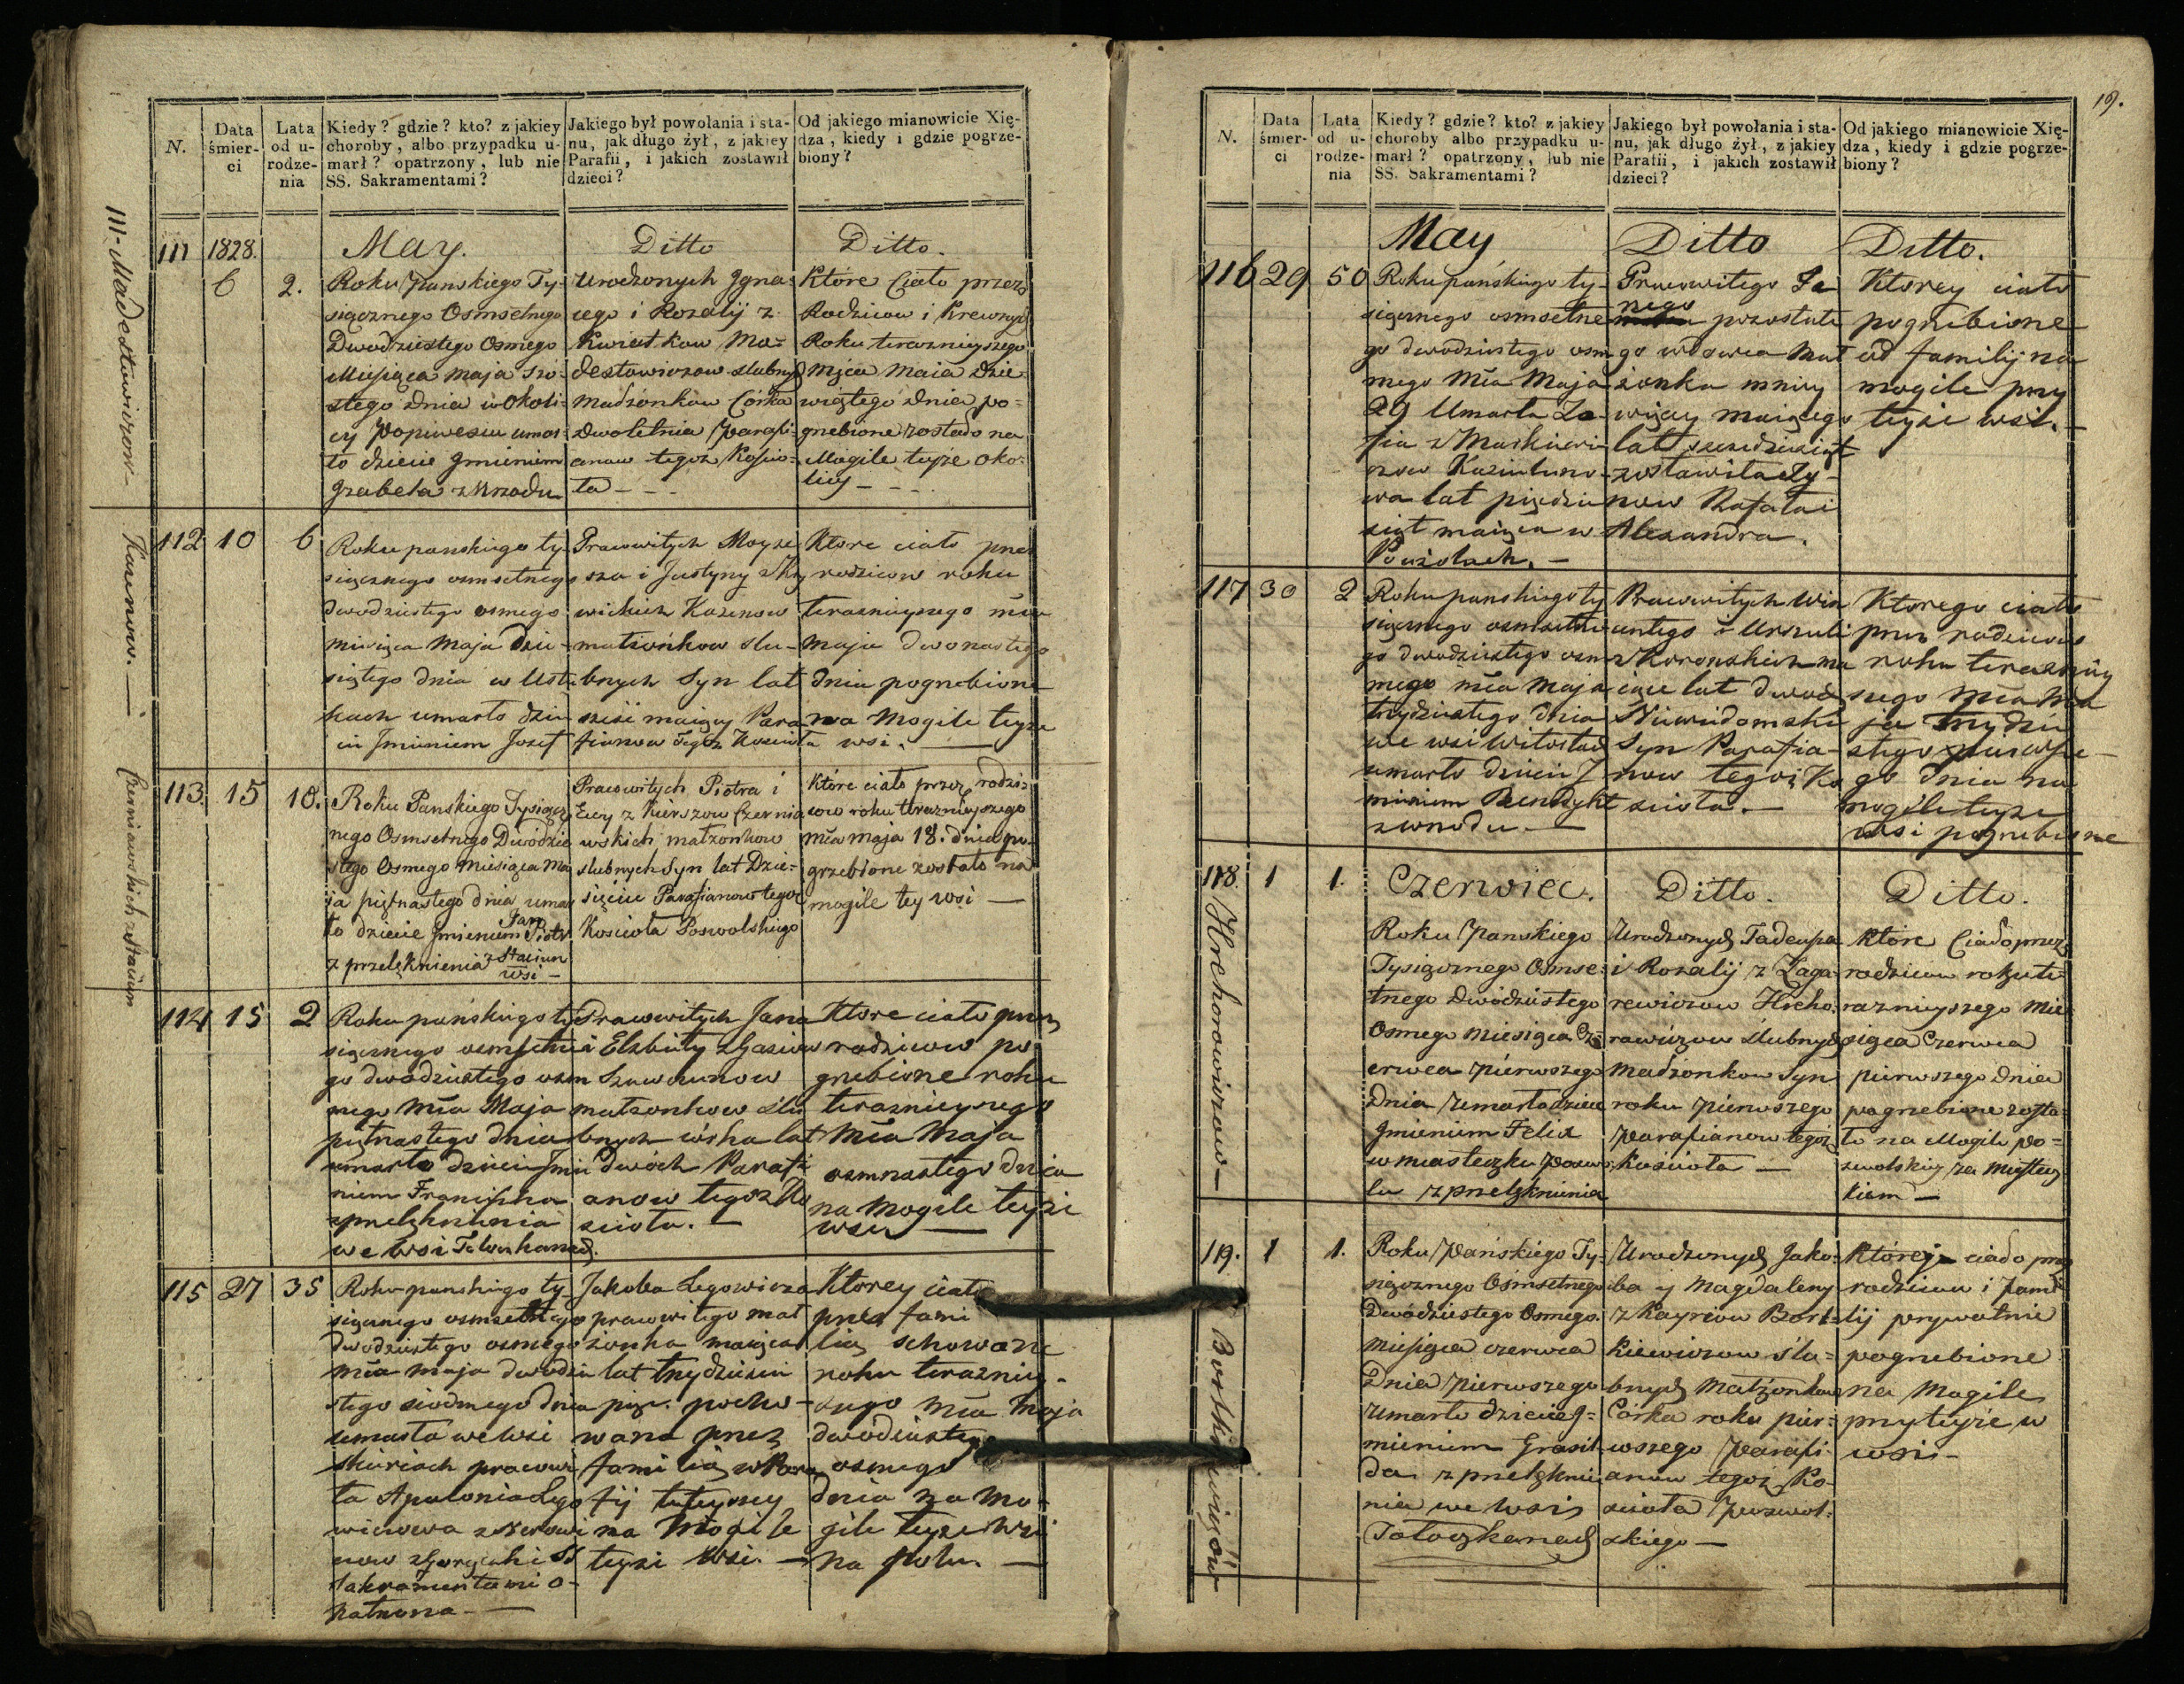 N.
Data śmierci
Lata od urodzenia
Kiedy? gdzie? kto? z jakiey
choroby, albo przypadku u-
marł? opatrzony, lub nie
SS. Sakramentami?
Jakiego był powołania i sta-
nu, jak długo żył, z jakiey
Parafii, i jakich zostawił
dzieci?
Od jakiego mianowicie Xię-
dza, kiedy i gdzie pogrze-
biony?
111 1828.
6 2.
May.
Roku Panskiego Ty-
siącznego Osmsetnego
Dwodziestego Osmego
Miesiąca Maja szo-
stego dnia w Okoli-
cy Popiweszu umar-
ło dziecie Jmieniem
Jzabela z Wrzodu
Ditto
Urodzonych Jgna-
cego i Rozalij z
Kwiatkow Ma-
destowiczow slubnych
Madżonkow Córka
Dwoletnia Parafi-
anow tegoż Koscio-
ła
Ditto.
Które Ciało przez
Rodzicow i Krewnych
Roku terazniejszego
Mjca Maia Dzie-
wiątego Dnia po-
grzebione zostało na
Mogile teyże oko-
licy
112 10 6
Roku panskiego ty-
siącznego osmsetnego
dwodziestego osmego
miesiąca Maja dzie-
siątego dnia w Ust-
kach umarło dzie-
cie Jmieniem Jozef
Pracowitych Moyże
sza i Justyny z Ry
wickich Kazenow
małżonkow slu-
bnych Syn lat
sześć maiący Para
fianow Tegoż Kosciola
Ktore ciało przez
rodzicow roku
teraznieyszego mca
maja dwonastego
dnia pogrzebione
na Mogile teyże
wsi.
113 15 10.
Roku Panskiego Tysiącz
nego Osmsetnego Dwódzie
stego Osmego Miesiąca Ma
ja piętnastego dnia umar
ło dziecie Jmieniem Jan Piotr
z przelęknienia z Staciun
wsi
Pracowitych Piotra i
Ewy z Kierszow Czernia
wskich małzonkow
slubnych Syn lat Dzie-
sięciu Parafianow tegoż
Kosciola Poswolskiego
Które ciało przez rodzi-
cow roku teraznieyszego
mca maja 18. dnia po-
grzebione zostało na
mogile tey wsi
114 15 2
Roku pańskiego ty
siącznego osmsetne
go dwodziestego osm
mego Mca Maja
piętnastego dnia
umarło dziecie Jmie
niem Franciszka
z przelęknienia
we wsi Tołoczkanach.
Pracowitych Jana
i Elzbiety z Gasow
Szawdunow
małżonkow slu
bnych córka lat
Dwóch Parafi
anow tegoż Ko
scioła.
Ktore ciało przez
rodzicow po
grzebione roku
teraznieyszego
Mca Maja
osmnastego dnia
na Mogile teyże
wsi
115 27 35
Roku panskiego ty-
siącznego osmsetnego
dwodziestego osmego
mca maja dwodzie
stego siodmego dnia
umarła we wsi
Skieriach pracowi
ta Apolonia Lego
wiczowa z
now z Gorączki SS
Sakramentami o-
patrzona
Jakoba Legowicza
pracowitego mał
żonka maiąca
lat trzydziesci
pięć. pocho-
wana przez
familią w Para
fij tuteyszey
na Mogile
teyże wsi.
Ktorey ciało
przez fami
lią schowane
roku terazniey-
szego Mca Maja
dwódziestego
osmego
dnia na Mo-
gile teyże wsi
na polu.
111- Madestowiczow
Kazenow.
Czerniawskich z Staciun
19.
N.
Data śmierci
Lata od urodzenia
Kiedy? gdzie? kto? z jakiey
choroby albo przypadku u-
marł? opatrzony, lub nie
SS. Sakramentami?
Jakiego był powołania i sta-
nu, jak długo żył, z jakiey
Parafii, i jakich zostawił
dzieci?
Od jakiego mianowicie Xię-
dza, kiedy i gdzie pogrze-
biony?
116 29 50
May
Roku pańskiego ty-
siącznego osmsetne
go dwodziestego osm
mego Mca Maja
29 Umarła Zo-
fia z Mackiewi-
czow
wa lat pięćdzie
siąt maiąca w
Powżolach.
Ditto
Pracowitego Ja
nego pozostałe
go wdowca Mał
żonka mniey
więcy maiącego
lat szescdziesiąt
zostawiła Sy-
now Rafała i
Alexandra.
Ditto.
Ktorey ciało
pogrzebione
od familij na
mogile przy
teyże wsi.
117 30 2
Roku panskiego ty
siącznego osmsetne
go dwodziestego osm
mego mca Maja
trzydziestego dnia
we wsi Witoslad
umarło dziecie J
mieniem Benedykt
z wrzodu.
Pracowitych Win
centego i Urszuli
z Koronskich ma
iące lat dwa
Niewiadomski
Syn Parafia-
now tegoż Ko
scioła.
Ktorego ciało
przez rodzicow
roku teraznieys
szego Mca Ma
ja Trzydzie
stego pierwsze-
go dnia na
mogile teyże
wsi pogrzebione
118. 1 1.
Czerwiec.
Roku Panskiego
Tysiącznego Osmse-
tnego Dwódziestego
Osmego Miesiąca Cz-
erwca Pierwszego
Dnia umarło dziecie
Jmieniem Felix
w miasteczku Poswo-
lu z przelęknienia
Ditto.
Urodzonych Tadeusza
i Rozalij z Zaga-
rewiczow Hreho-
rowiczow slubnych
Madżonkow Syn
roku Pierwszego
Parafianow tegoż
Kościoła
Ditto.
Które Ciało przez
rodzicow roku te-
raznieyszego Mie-
siąca Czerwca
pierwszego dnia
pogrzebione zosta-
ło na Mogile Po-
swolskiey za Miastecz
kiem
119. 1 1.
Roku Pańskiego Ty-
siącznego Ośmsetnego
Dwódziestego Osmego
Miesiąca czerwca
Dnia Pierwszego
umarło dziecie J-
mieniem Grasil-
da z przelęknie
nia we wsi
Tołoczkanach
Urodzonych Jako-
ba y Magdaleny
z Kayriow Bort-
kiewiczow ślu-
bnych Małżonkow
Córka roku pier-
wszego Parafi-
anow tegoż Ko-
scioła Poswol-
skiego
Którey ciało przez
rodzicow i fami
lij prywatnie
pogrzebione
na Mogile
przy teyże w
wsi
Hrehorowiczow
Bortkiewiczów